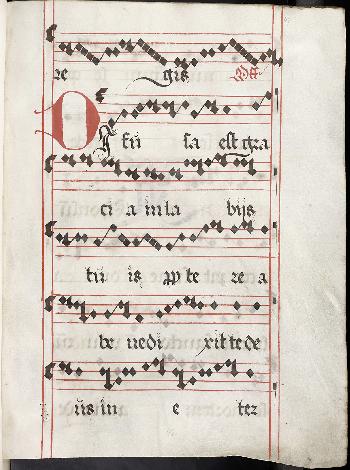 re gis Off
D I fu sa est gra
ci a in la bijs
tu is pp te re a
be nedi xit te de
us in e ter